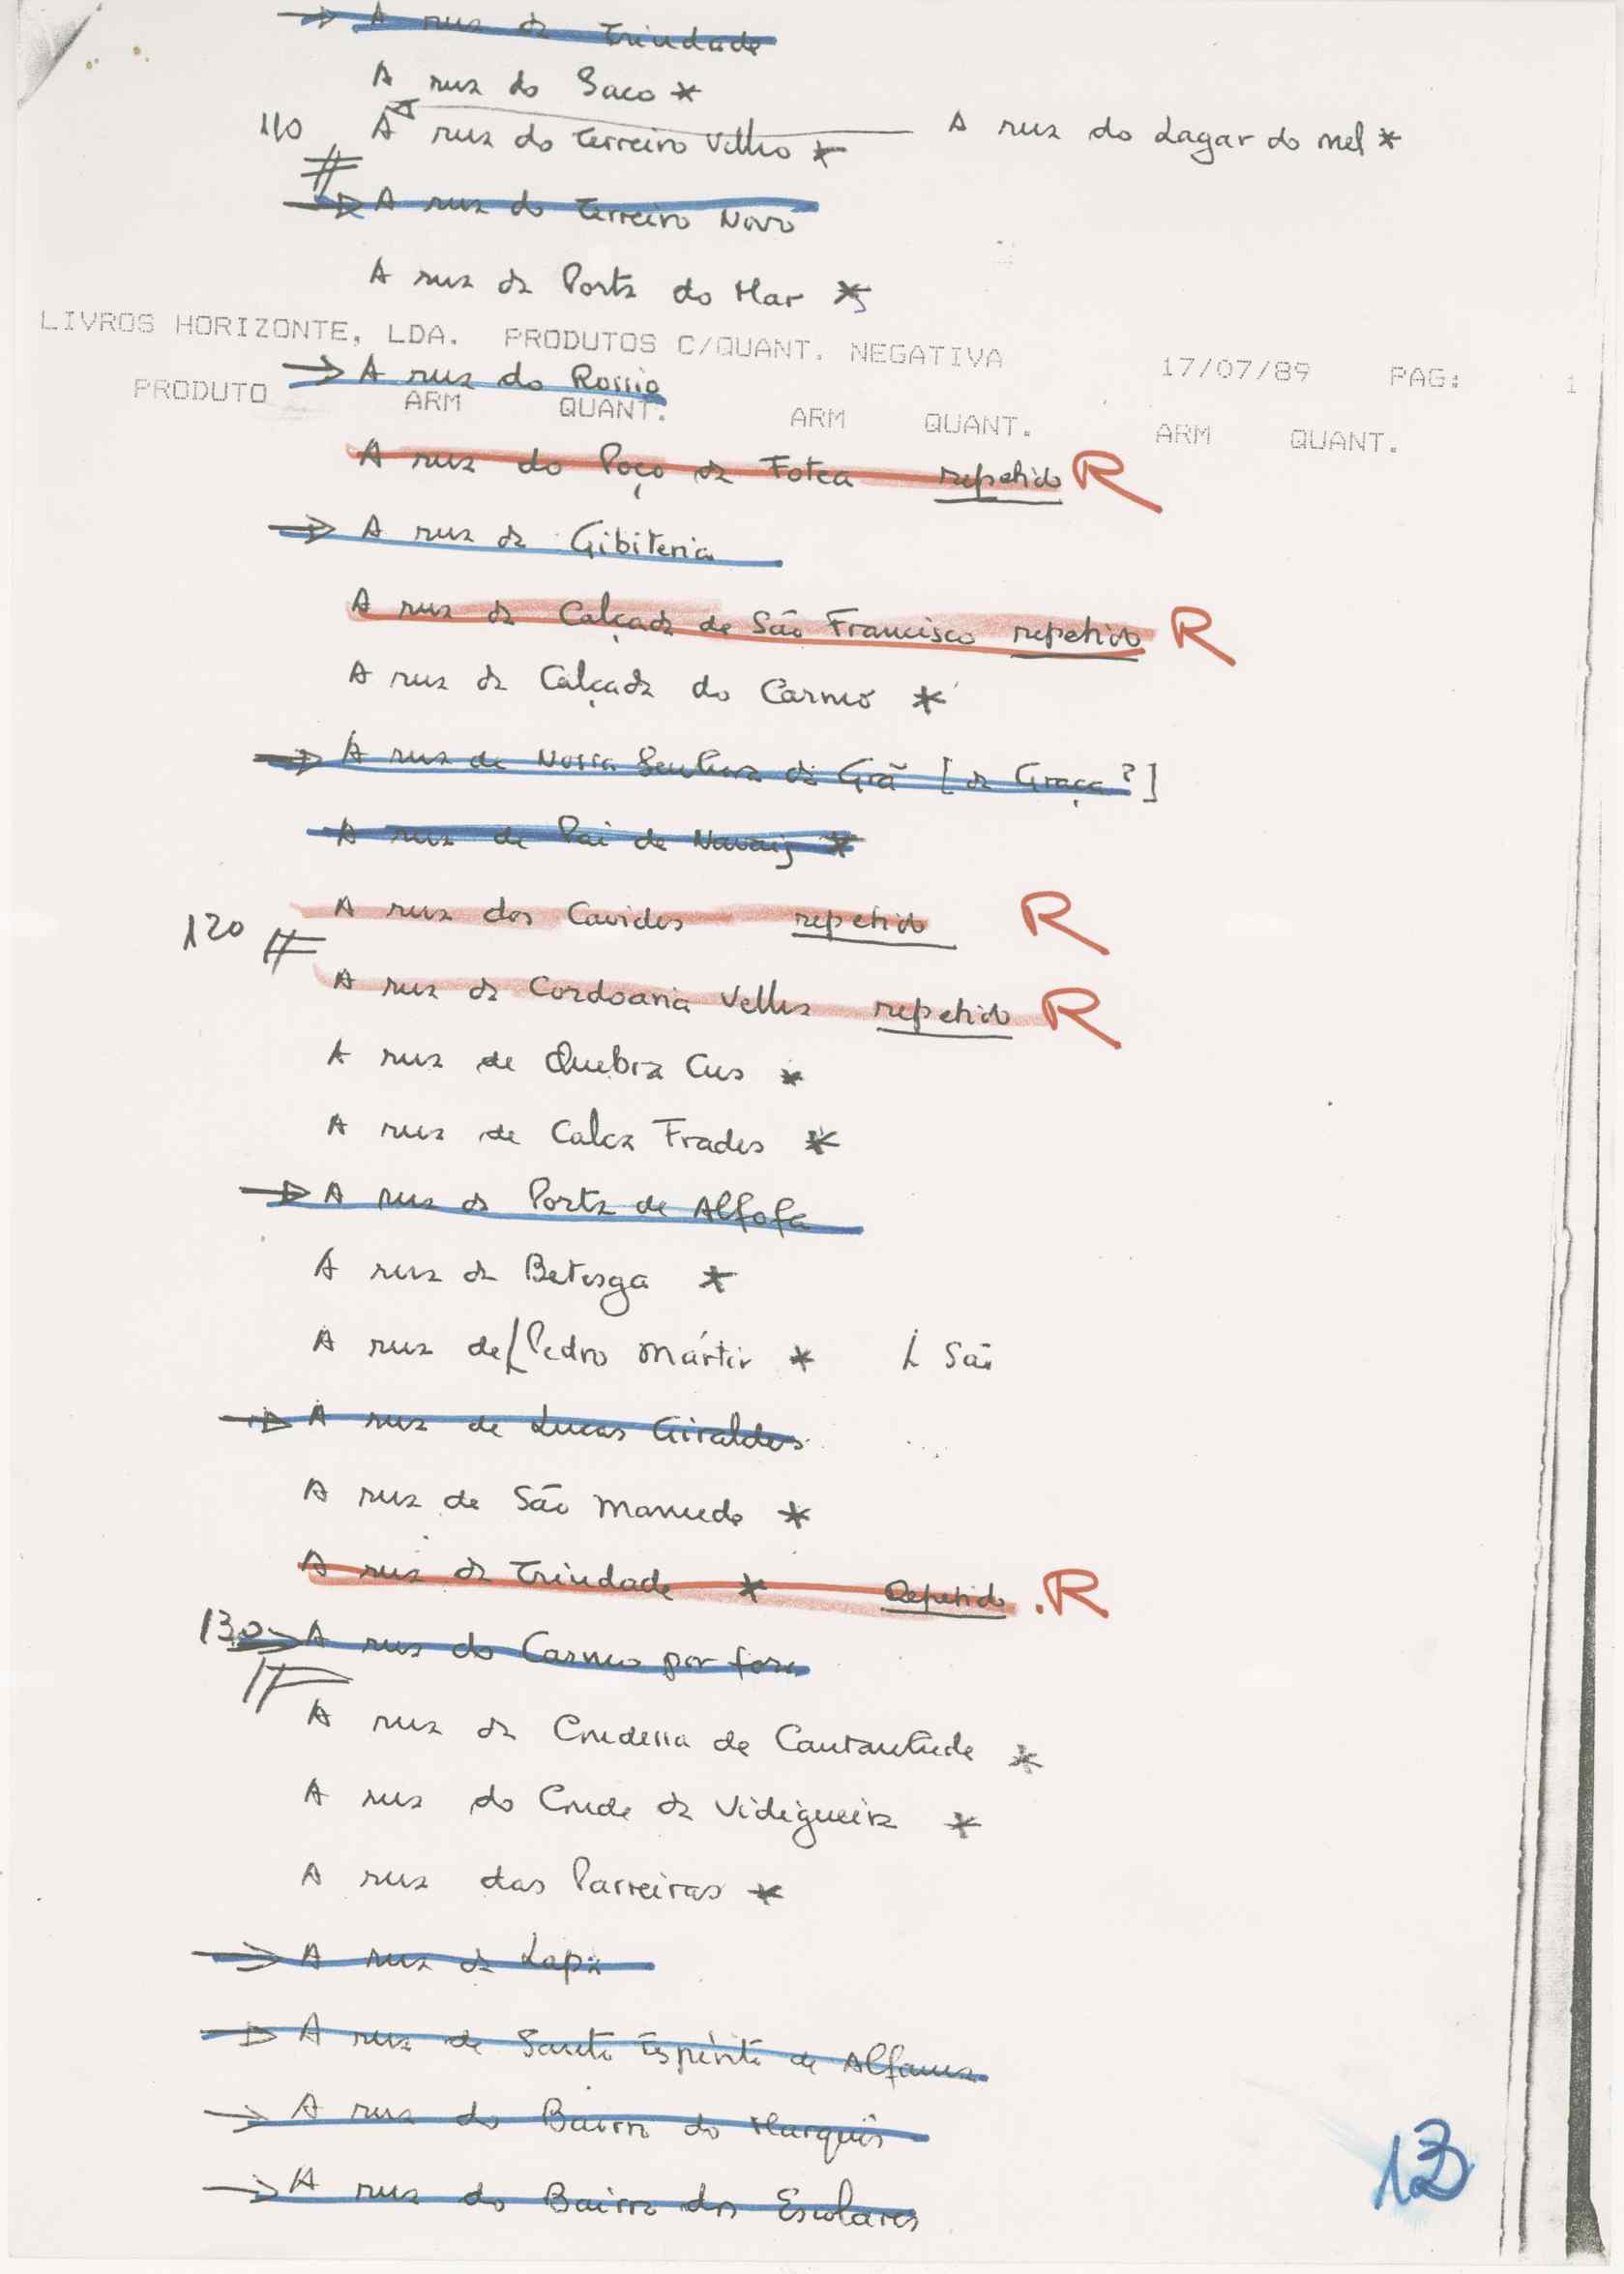 → A rua da Trindade
A rua do Saco *
110 A rua do Terreiro Velho * A rua do Lagar do Mel *
# → A rua do Terreiro Novo
A rua da Porta do Mar *
LIVROS HORIZONTE, LDA. PRODUTOS C/QUANT. NEGATIVA 17/07/89 PAG: 1
→ A rua do Rossio
PRODUTO ARM QUANT. ARM QUANT. ARM QUANT.
A rua do Poço da Fotea repetido R
→ A rua da Gibiteria
A rua da Calçada de São Francisco repetido R
A rua da Calçada do Carmo *
→ A rua de Nossa Senhora da Grã [da Graça?]
A rua de Pai de Navais *
120 # A rua dos Cavides repetido R
A rua da Cordoaria Velha repetido R
A rua de Quebra Cus *
A rua de Calca Frades *
→ A rua da Porta de Alfofa
A rua da Betesga *
A rua de [Pedro Mártir * [ São
→ A rua de Lucas Giraldes
A rua de São Mamede *
A rua da Trindade * Repetido . R
130 → A rua do Carmo por fora
# A rua da Condessa de Cantanhede *
A rua do Conde da Vidigueira *
A rua das Parreiras *
→ A rua da Lapa
→ A rua de Santo Espírito de Alfama
→ A rua do Bairro do Marquês
→ A rua do Bairro dos Escolares
13